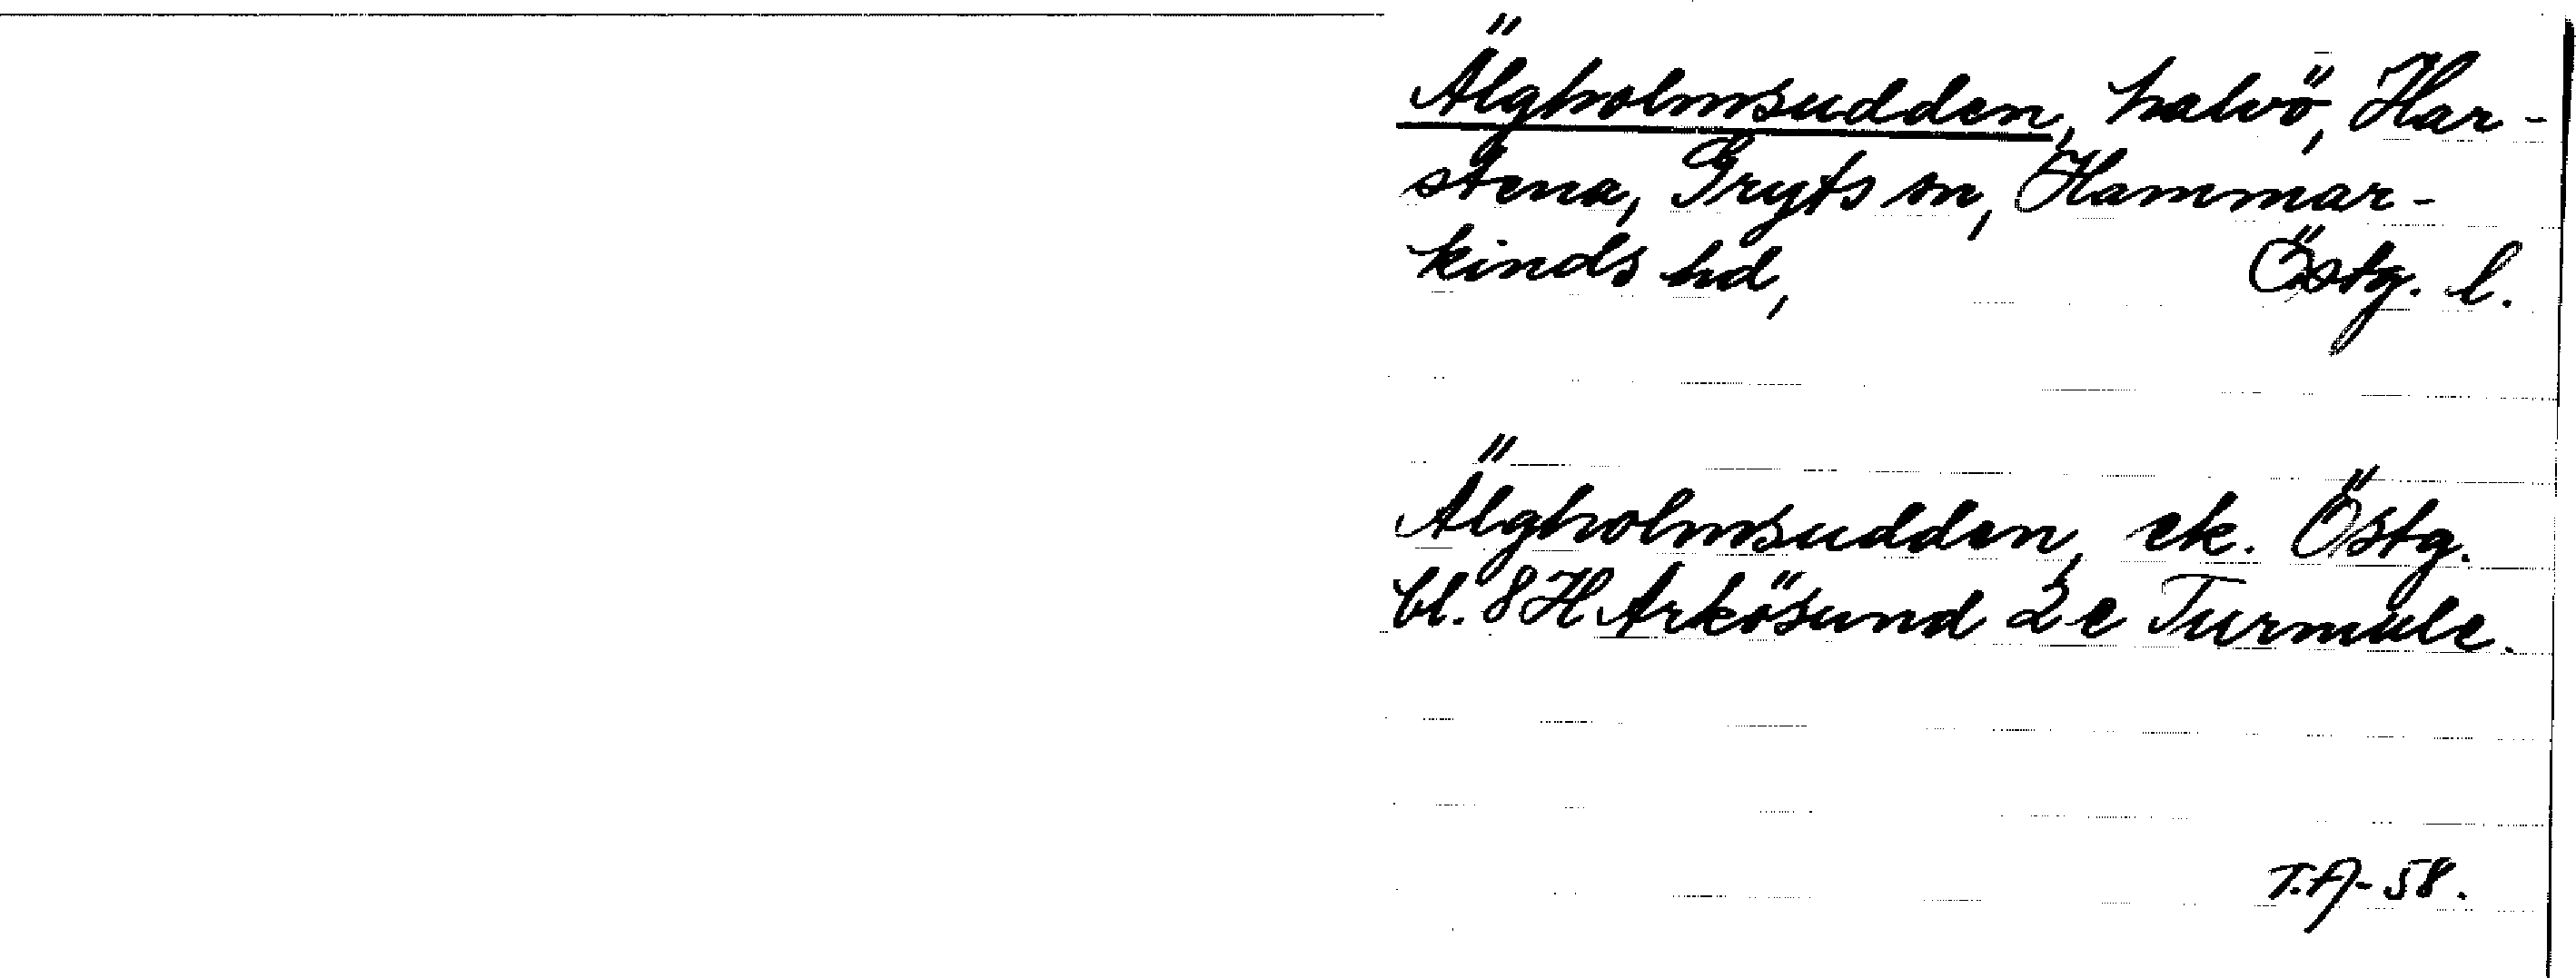 Älgholmsudden, halvö, Har-
stena, Gryts sn, Hammar-
kinds hd, Östg. l.
Älgholmsudden, ek. Östg.
bl. 8 H Arkösund 2 e Turmule.
T.A-58.